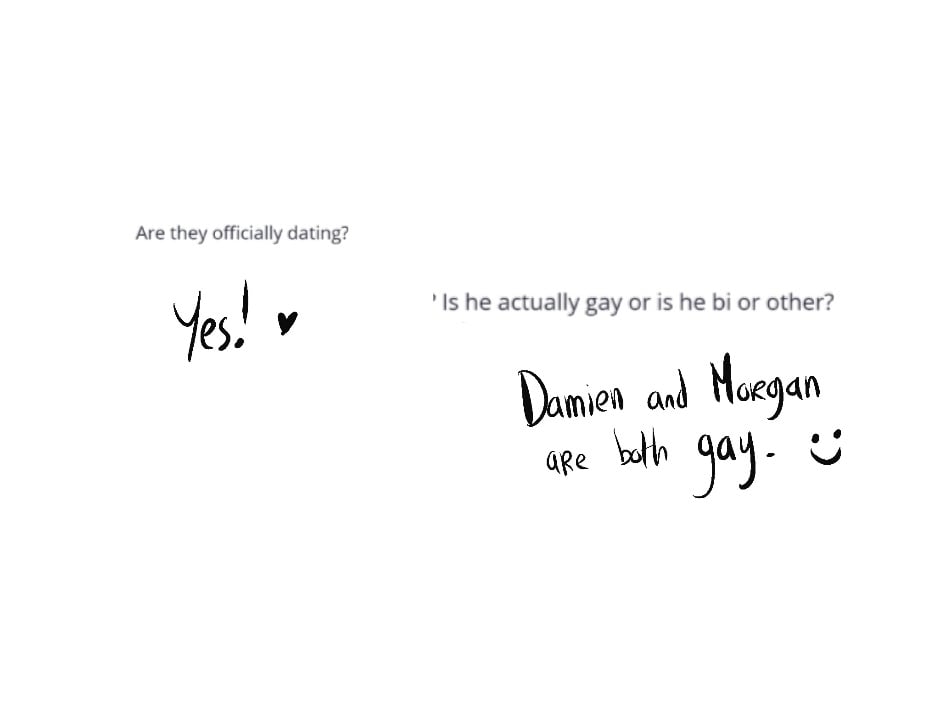 Are they officially dating?
Yes! ♥
' Is he actually gay or is he bi or other?
Damien and Morgan
are both gay. :)